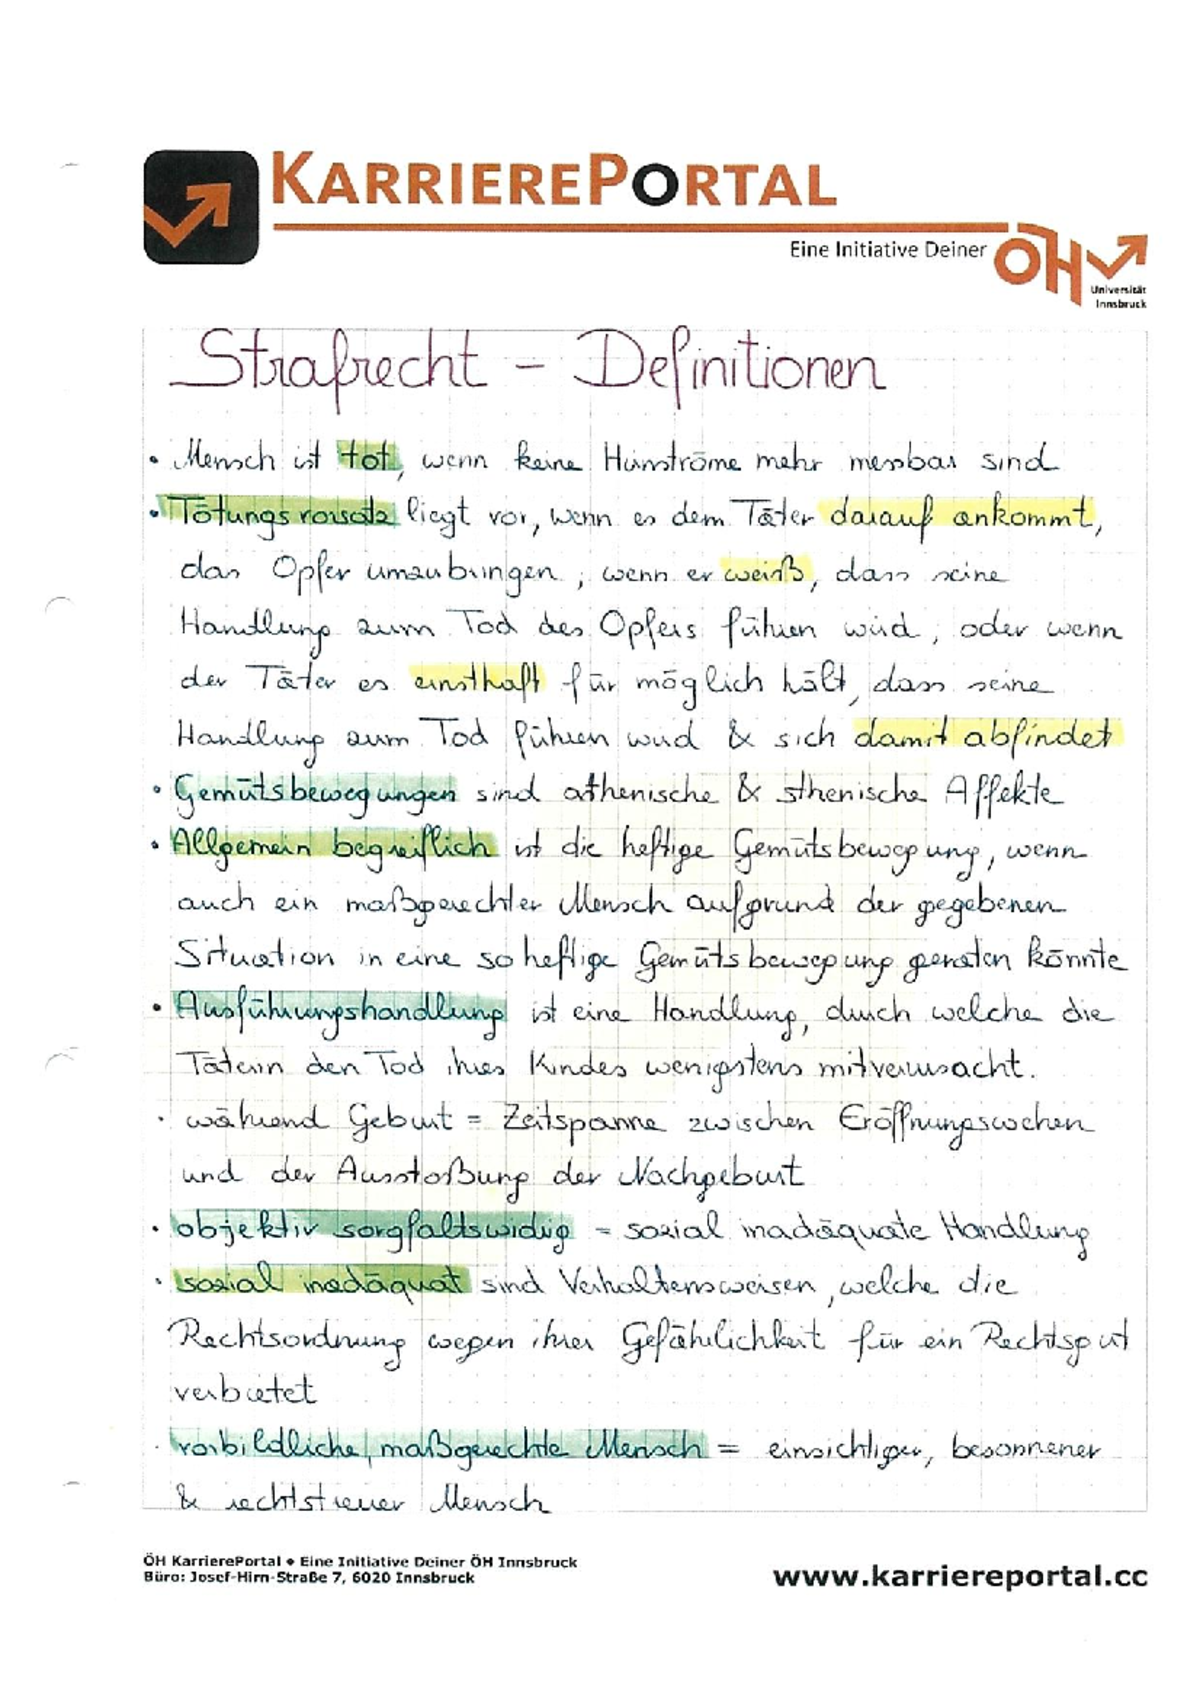 KARRIEREPORTAL
Eine Initiative Deiner ÖH
Universität
Innsbruck
Strafrecht - Definitionen
• Mensch ist tot, wenn keine Hirnströme mehr messbar sind
• Tötungsvorsatz liegt vor, wenn es dem Täter darauf ankommt,
das Opfer umzubringen; wenn er weiß, dass seine
Handlung zum Tod des Opfers führen wird, oder wenn
der Täter es ernsthaft für möglich hält, dass seine
Handlung zum Tod führen wird & sich damit abfindet
• Gemütsbewegungen sind athenische & sthenische Affekte
• Allgemein begreiflich ist die heftige Gemütsbewegung, wenn
auch ein maßgerechter Mensch aufgrund der gegebenen
Situation in eine so heftige Gemütsbewegung geraten könnte
• Ausführungshandlung ist eine Handlung, durch welche die
Täterin den Tod ihres Kindes wenigstens mitverursacht.
• während Geburt = Zeitspanne zwischen Eröffnungswehen
und der Ausstoßung der Nachgeburt
• objektiv sorgfaltswidrig = sozial inadäquate Handlung
• sozial inadäquat sind Verhaltensweisen, welche die
Rechtsordnung wegen ihrer Gefährlichkeit für ein Rechtsgut
verbietet
• vorbildliche, maßgerechte Mensch = einsichtiger, besonnener
& rechtstreuer Mensch
ÖH KarrierePortal • Eine Initiative Deiner ÖH Innsbruck
Büro: Josef-Hirn-Straße 7, 6020 Innsbruck
www.karriereportal.cc